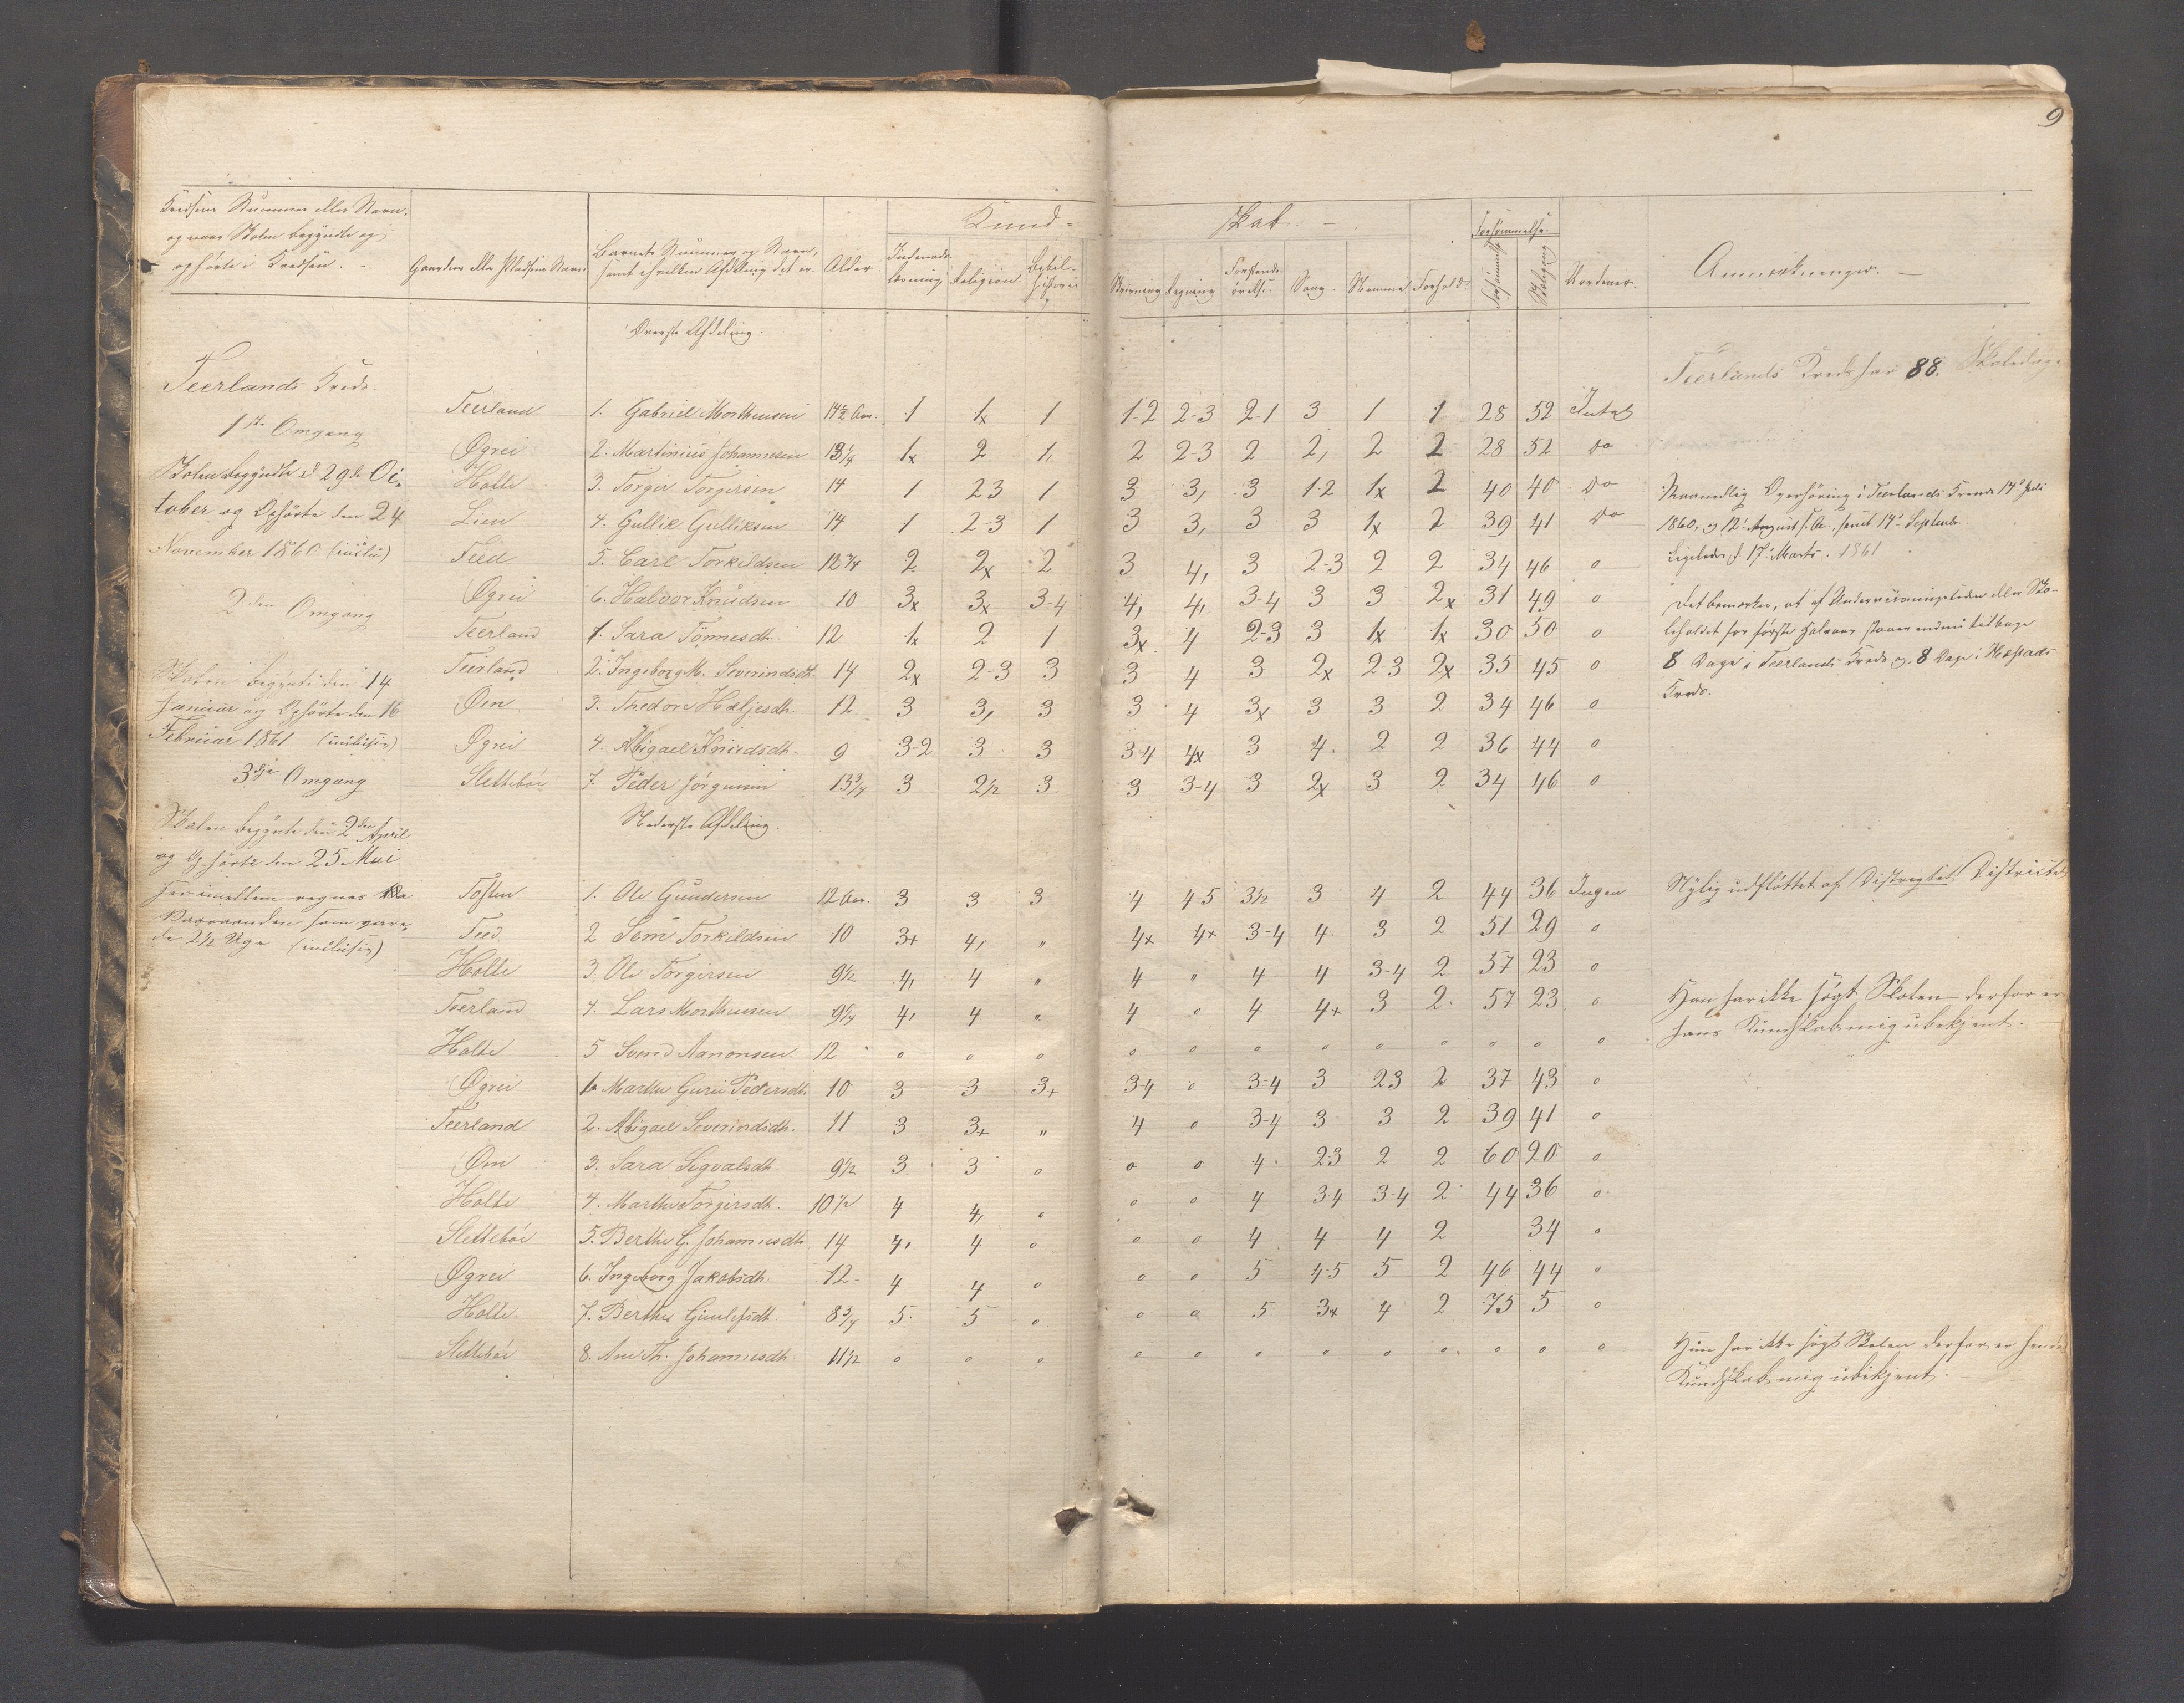 9
Kredsens Nummer eller Navn,
og naar Skolen begyndte og
ophørte i Kredsen.
Gaardens eller Pladsens Navn
Barnets Nummer og Navn,
samt i hvilken Afdeling det er
Alder.
Kund- skab.
Religion
Bibelhistorie
Skrivning
Regning
Sang.
Stemme
Forhold.
Forsømmelse.
Skolegang
Anmærkninger.
Øverste Afdeling.
Teerlands Kreds.
Teerlands Kreds har 88. Skoledage
1ste Omgang
Teerland 1. Gabriel Morthensen 14½ Aar. 1 1x 1 1-2 2-3 2-1 3 1 1 28 52
Øgrei 2. Martinius Johannesen 13¼ 1x 2 1, 2 2-3 2 2, 2 2 28 52 do
Skolen begyndte d. 29de Oc-
Holte 3. Torger Torgersen 14 1 23 1 3 3, 3 1-2 1x 2 40 40 do
tober og Ophørte den 24
Lien 4. Gullik Gulliksen 14 1 2-3 1 3 3, 3 3 1x 2 39 41 do
November 1860 (inclu)
Feed 5. Carl Torkildsen 12¾ 2 2x 2 3 4, 3 2-3 2 2 34 46 o
Øgrei 6. Halvor Knudsen 10 3x 3x 3-4 4, 4, 3-4 3 3 2x 31 49 o
2den Omgang
Teerland 1. Sara Tönnesdh. 12 1x 2 1 3x 4 2-3 3 1x 1x 30 50 o
Teerland 2. Ingeborg M. Severindsdh. 14 2x 2-3 3 3 4 3 2x 2-3 2x 35 45 o
Skolen begynte den 14
Øen 3. Thedore Hæljesdh. 12 3 3, 3 3 4 3x 3 3 2 34 46 o
Januar og Ophørte den 16
Øgrei 4. Abigael Knudsdh. 9 3-2 3 3 3-4 4x 3 4. 2 2 36 44 o
Februar 1861 (inclusiv)
Slettebøe 7. Peder Jörgensen 13¾ 3 2½ 3 3 3-4 3 2x 3 2 34 46 o
3dje Omgang
Maanedlig Overhøring i Teerlands Kreds 17de Juli
1860, og 12te August s. A., samt 17de Septemb.
Ligeledes d. 17de Marts. 1861
Det bemærkes, at af Undervisningstiden eller Sko-
leholdet for første Halvaar staaer endnu tilbage
8 Dage i Teerlands Kreds og 8 Dage i Hæstads
Kreds.
Nederste Afdeling.
Skolen begynte den 2den April
og Ophørte den 25 Mai
Toften 1. Ole Gundersen 12 Aar. 3 3 3 4 4-5 3½ 3 4 2 44 36 Ingen
Nylig udflöttet af Distrigtet Districtet
de 2½ Uge (inclusiv)
Feed 2 Sem Torkildsen 10 3+ 4, " 4x 4+ 3-4 4 3 2 51 29 o
Holte 3. Ole Torgersen 9½ 4, 4 " 4 " 4 4 3-4 2 57 23 o
Teerland 4. Lars Morthensen 9¼ 4, 4 " 4 o 4 4+ 3 2 57 23 o
Holte 5 Svend Aanonsen 12 o o o o o o o o o o o o
Han har ikke søgt Skolen derfor er
hans Kundskab mig ubekjent.
Øgrei 1. Marthe Gurie Pedersdh. 10 3 3 3+ 3-4 o 3-4 3 23 2 37 43 o
Teerland 2. Abigael Severindsdh. 11 3 3+ " 4 o 3-4 3 3 2 39 41 o
Øen 3. Sara Sigvalsdh. 9½ 3 3 o o o 4 23 2 2 60 20 o
Holte 4. Marthe Torgersdh. 10½ 4 4, o o o 4 3-4 3-4 2 44 36 o
Slettebøe 5. Berthe G. Johannesdh. 14 4, 4 o o o 4 4 4 2 34 o
Øgrei 6. Ingeborg Jakobsdh. 12 4 4 o o o 5 4-5 5 2 46 44 o
Holte 7. Berthe Gunlefsdh. 8¾ 5 5 o o o 5 3x 4 2 75 5 o
Slettebøe 8. Ane Th. Johannesdh. 11½ o o o o o o o o o o o o
Hun har ikke søgt Skolen derfor er hendes
Kundskab mig ubekjent.